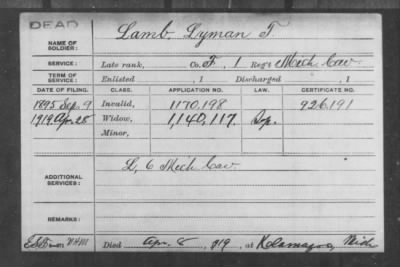 DEAD
NAME OF SOLDIER: Lamb, Lyman T.
SERVICE: Late rank, Co. F, 1 Reg't Mich Cav.
TERM OF SERVICE: Enlisted , 1 Discharged , 1
DATE OF FILING. CLASS. APPLICATION NO. LAW. CERTIFICATE NO.
1895 Sep. 9 Invalid, 1170,198 926,191
1919 Apr. 28 Widow, 1,140,117.
Minor,
ADDITIONAL SERVICES: L, 6 Mich Cav.
REMARKS:
Died Apr. 8, 1919, at Kalamazoo, Mich